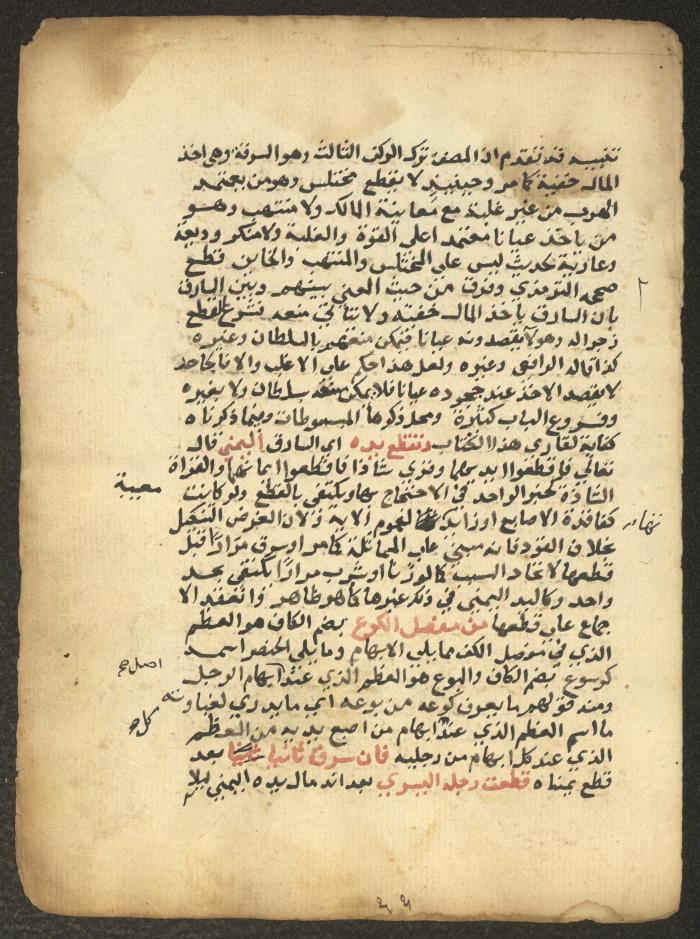 تنبيه قد تقدم ان المصنف ترك الركن الثالث وهو السرقة وهى اخذ
المال خفية كما مر وحينيذ لا يقطع مختلس وهو من يعتمد
الهرب من غير غلبة مع معاينة المالك ولا منتهب وهو
من ياخذ عيانا معتمدا على القوة والغلبة ولا منكر وديعة
وعارية لحديث ليس على المختلس والمنتهب والخاين قطع
صححه الترمذي وفرق من حيث المعنى بينهم وبين السارق
بان السارق ياخذ المال خفية ولا يتاتي منعه فشرع القطع
زجرا له وهولا يقصدونه عيانا فيمكن منعهم بالسلطان وغيره
كذا قاله الرافعي وغيره ولعل هذا حكم على الاغلب والا فالجاحد
لا يقصد الاخذ عند جحوده عيانا فلا يمكن منعه بسلطان ولا بغيره
وفروع الباب كثيرة ومحل ذكرها المبسوطات وفيما ذكرناه
كفاية لقاري هذا الكتاب وتقطع يده اي السارق اليمني قال
تعالي فاقطعوا ايديهما وقري شاذا فاقطعوا ايمانهما والقراة
الشاذة كخبر الواحد في الاحتجاج بها ويكتفي بالقطع ولو كانت
معيبة
كفاقدة الاصابع او زايدتها لعموم الاية ولان الغرض التنكيل
تها صح
بخلاف القود فانه مبني علي المماثلة كما مر او سرق مرارا قبل
قطعها لاتحاد السبب كما لو زنا او شرب مرارا يكتفي بحد
واحد وكاليد اليمني في ذلك غيرها كما هو ظاهر وانعقد الا
جماع علي قطعها من مفصل الكوع بضم الكاف هو العظم
الذي في مفصل الكف مما يلي الابهام وما يلي الخنصر اسمه
كرسوع بضم الكاف والبوع هو العظم الذي عند ابهام الرجل
اصل صح
ومنه قولهم ما يعرف كوعه من بوعه اي ما يدري لغباوته
ما اسم العظم الذي عند ابهام من اصبع يديه من العظم
كل صح
الذي عند كل ابهام من رجليه فان سرق ثانيا ثانيا بعد
قطع يمناه قطعت رجله اليسري بعد اندمال يده اليمني ليلا